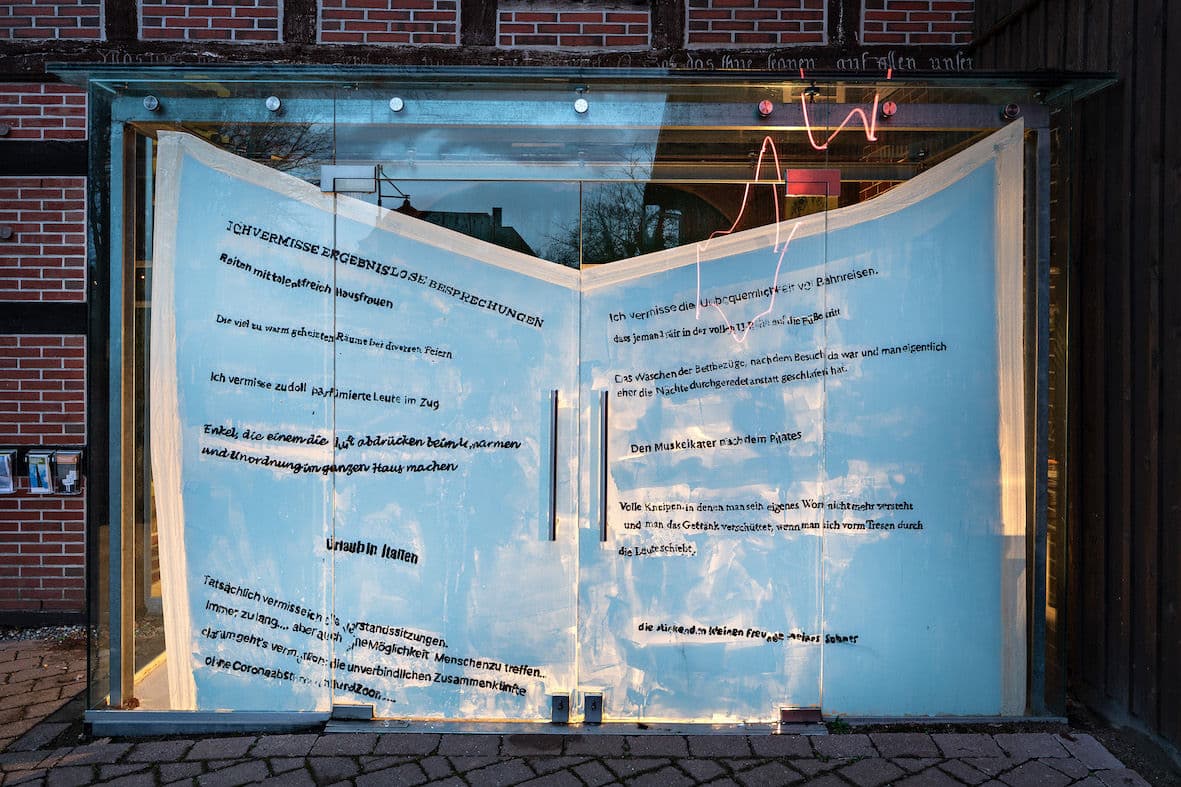 das Ihre leonen auf allen unser
ICH VERMISSE ERGEBNISLOSE BESPRECHUNGEN
Reiten mit talentfreich Hausfrauen
Die viel zu warm geheizten Räume bei diversen Feiern
Ich vermisse zu doll parfümierte Leute im Zug
Enkel, die einem die Luft abdrücken beim Umarmen
und Unordnung im ganzen Haus machen
Urlaub in Italien
Tatsächlich vermisse ich die Vorstandssitzungen.
Immer zu lang.... aber auch eine Möglichkeit Menschen zu treffen...
darum geht's vermutlich: die unverbindlichen Zusammenkünfte
ohne Coronaabstand und Zoom ....
Ich vermisse die Unbequemlichkeit von Bahnreisen.
dass jemand mir in der vollen U-Bahn auf die Füße tritt
Das Waschen der Bettbezüge, nachdem Besuch da war und man eigentlich
eher die Nächte durchgeredet anstatt geschlafen hat.
Den Muskelkater nach dem Pilates
Volle Kneipen, in denen man sein eigenes Wort nicht mehr versteht
und man das Getränk verschüttet, wenn man sich vorm Tresen durch
die Leute schiebt.
die kleinen Freunde meines Sohnes